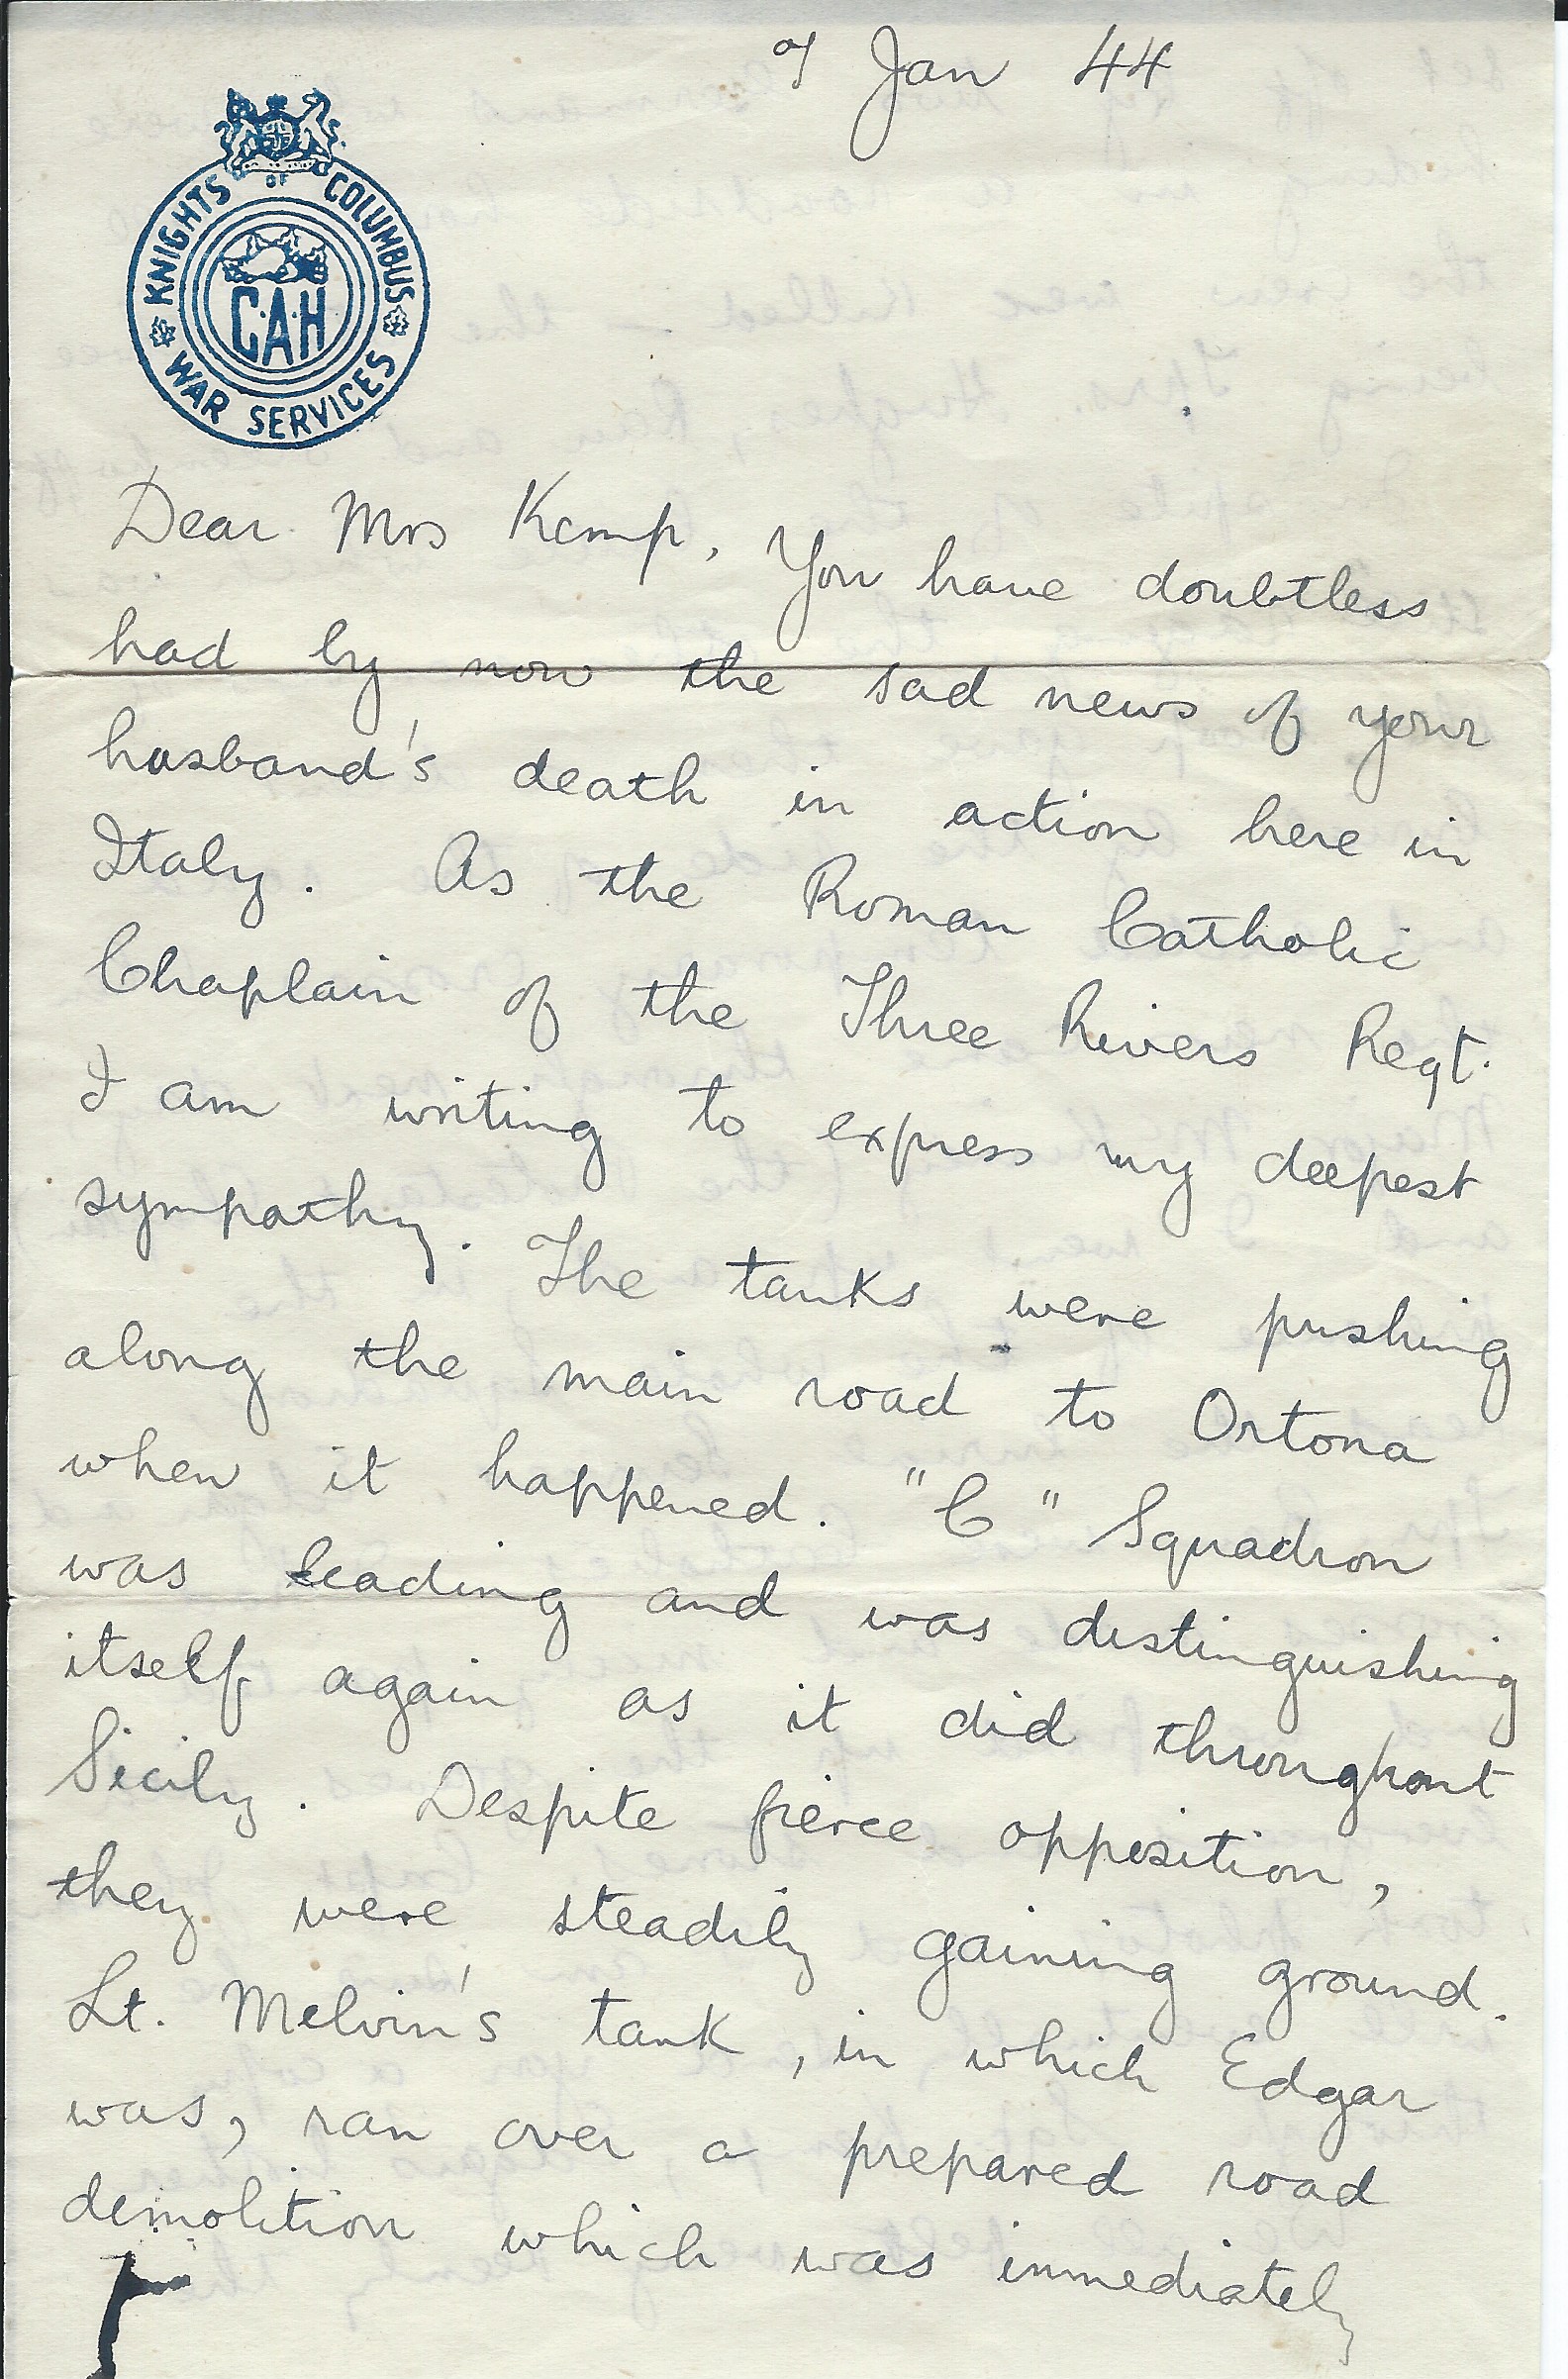 9 Jan 44
KNIGHTS OF COLUMBUS
C.A.H
WAR SERVICES
Dear Mrs Kemp, You have doubtless
had by now the sad news of your
husband's death in action here in
Italy. As the Roman Catholic
Chaplain of the Three Rivers Regt.
I am writing to express my deepest
sympathy. The tanks were pushing
along the main road to Ortona
when it happened. "C" Squadron
was leading and was distinguishing
itself again as it did throughout
Sicily. Despite fierce opposition,
they were steadily gaining ground.
Lt. Melvin's tank, in which Edgar
was, ran over a prepared road
demolition which was immediately